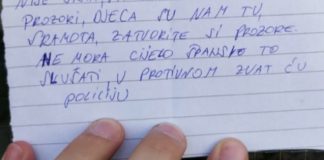 PROZORI, DJECA SU NAM TU,
SRAMOTA, ZATVORITE SI PROZORE.
NE MORA CIJELO ŠPANSKO TO
SLUŠATI U PROTIVNOM ZVAT ĆU
POLICIJU